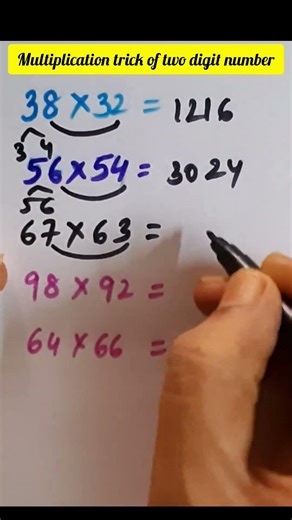 Multiplication trick of two digit number
38 × 32 = 1216
3 4
56 × 54 = 3024
5 6
67 × 63 =
98 × 92 =
64 × 66 =